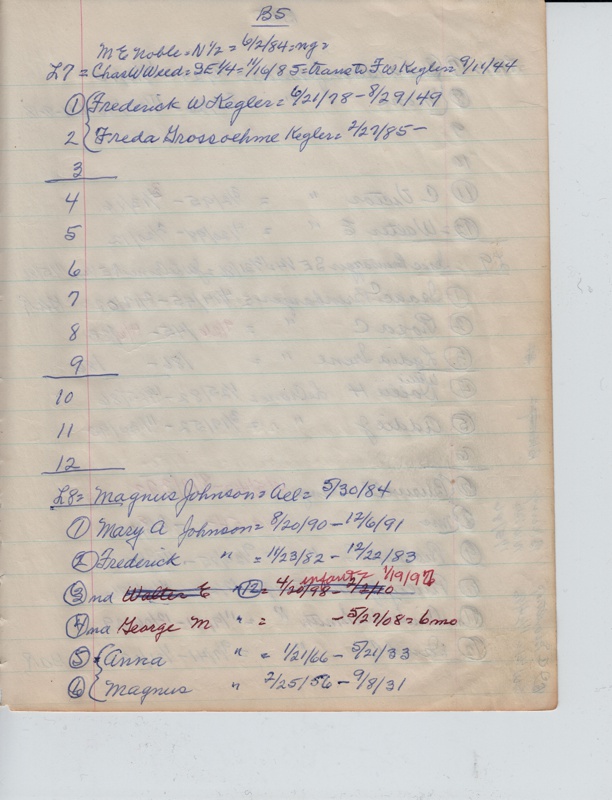 B5
M E Noble = N 1/2 = 6/2/84 = ng =
L7 = Chas W Weed = SE 1/4 = 11/16/85 = trans to F W Kegler = 9/11/44
1 Frederick W Kegler = 6/21/78 - 8/29/49
2 Freda Grossoehme Kegler = 2/27/85 -
3
4
5
6
7
8
9
10
11
12
L8 = Magnus Johnson = all = 5/30/84
1 Mary A Johnson = 8/20/90 - 12/6/91
2 Frederick " = 11/23/82 - 12/22/83
infant 1/19/97
3 nd Walter E " 12 = 4/20/98 - 2/2/10
4 nd George M " = - 5/27/08 = 6 mo
5 Anna " = 1/21/66 - 5/21/33
6 Magnus " 2/25/56 - 9/8/31